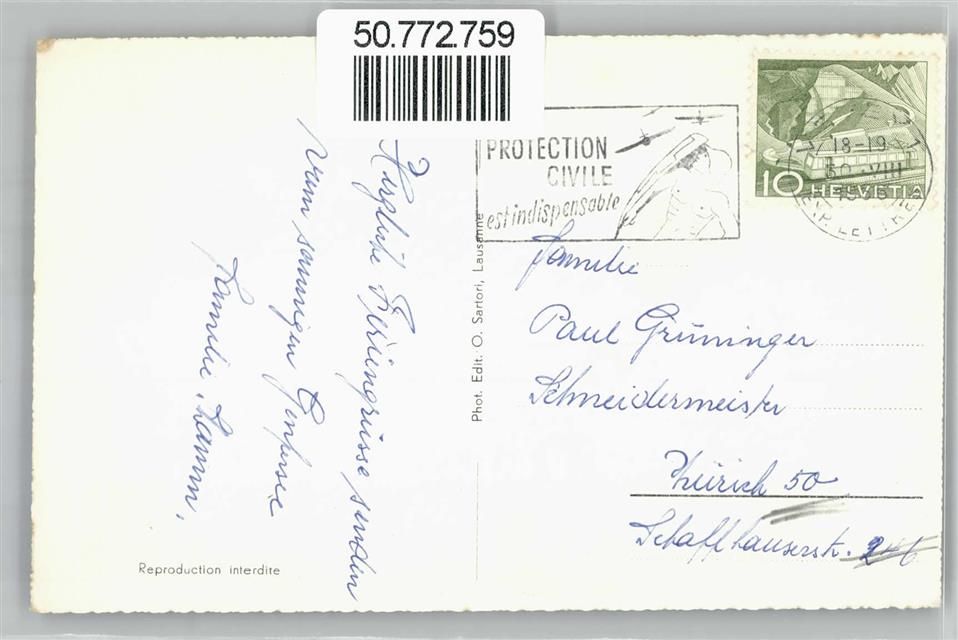 50.772.759
PROTECTION
CIVILE
est indispensable
18-19
VIII
10 HELVETIA
Herzliche Feriengrüsse senden
vom sonnigen Genfersee
Familie
Phot. Edit. O. Sartori, Lausanne
Reproduction interdite
Familie
Paul Grüninger
Schneidermeister
Zürich 50
Schaffhauserstr. 246